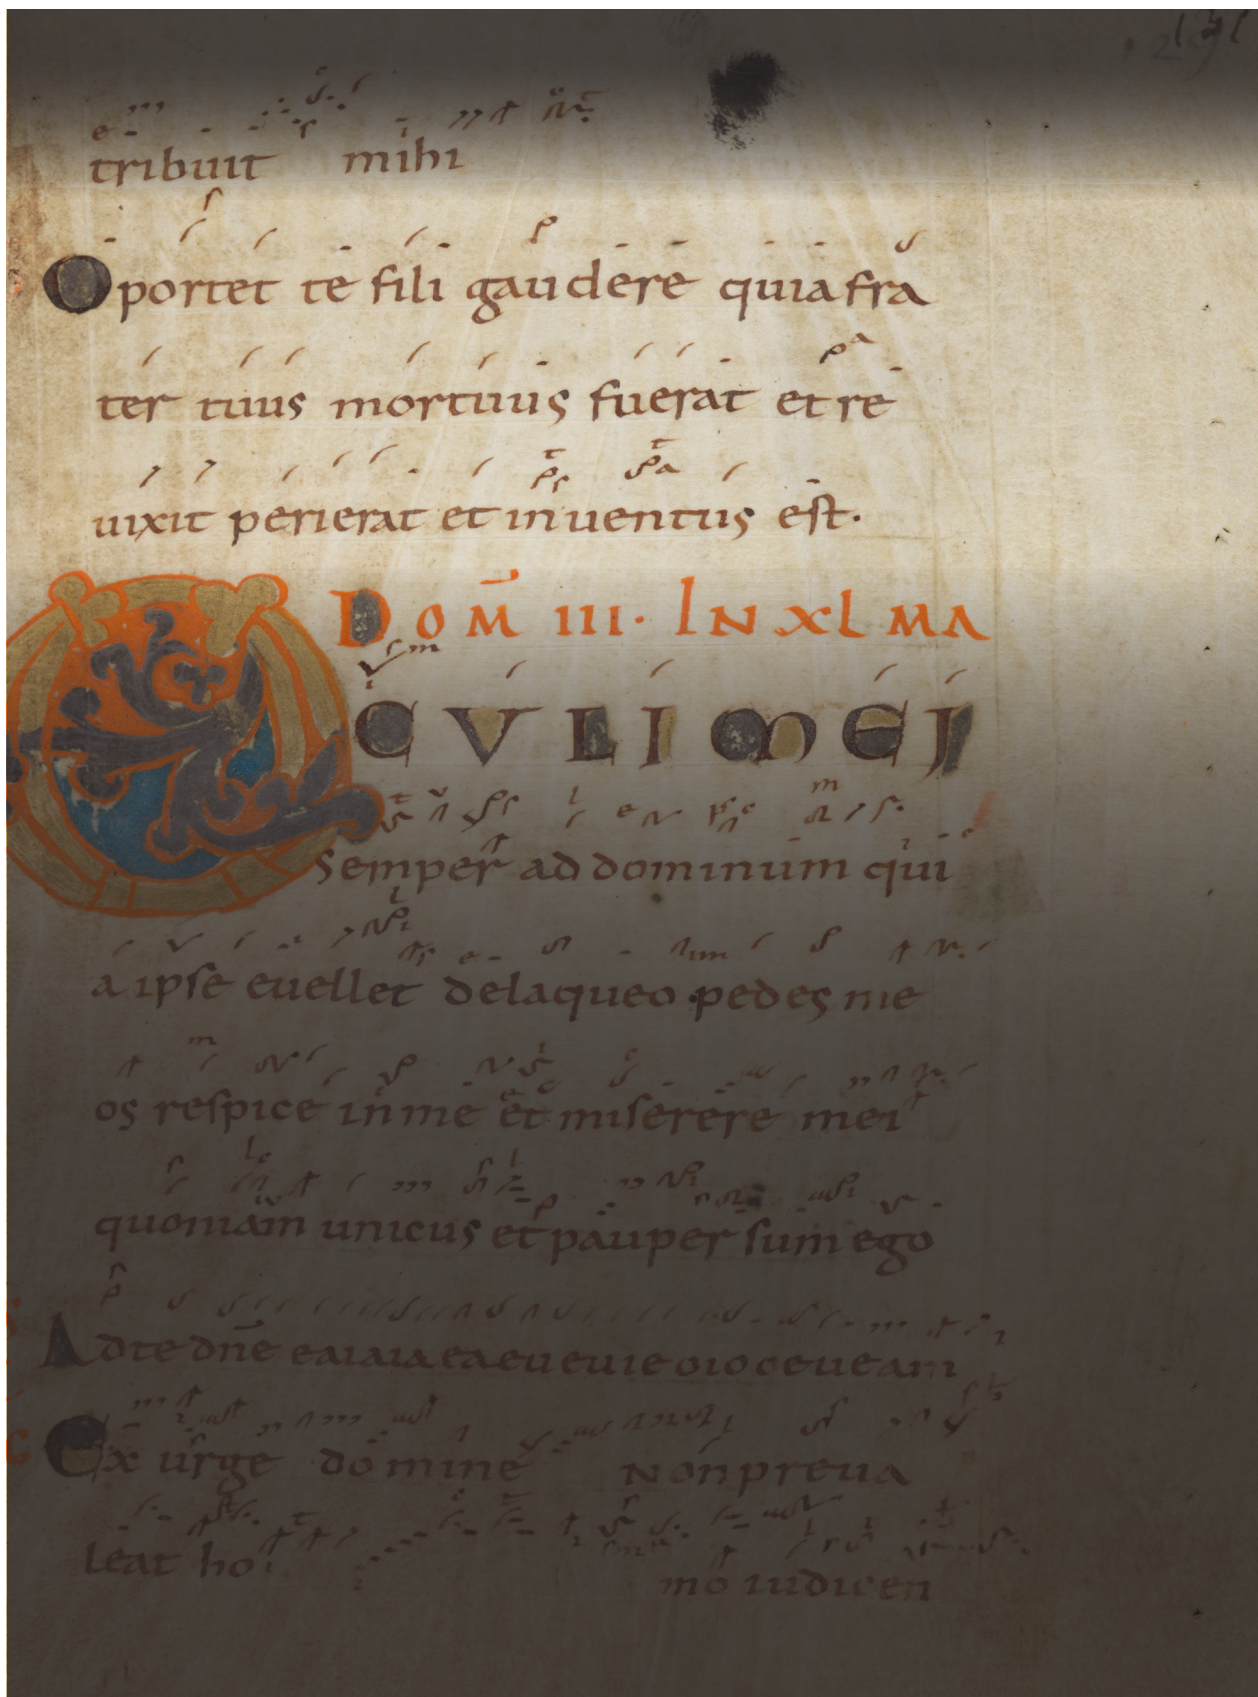 tribuit mihi
Oportet te fili gaudere quia fra
ter tuus mortuus fuerat et re
uixit perierat et inuentus est.
DOM̄ III· IN XL MA
OCVLI MEI
semper ad dominum qui
a ipse euellet delaqueo pedes me
os respice in me et miserere mei
quoniam unicus et pauper sum ego
Ad te dn̄e eaiaia ea eu euie oio oeueam
Exurge domine non preua
leat ho mo iudicen